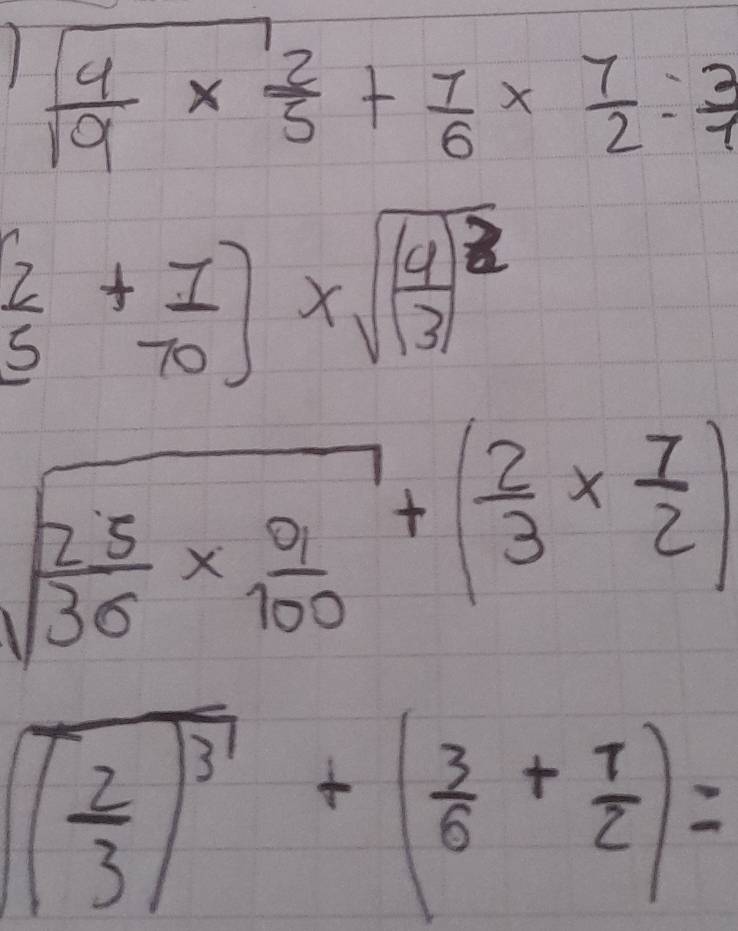 ) √(4/9 × 2/5) + 1/6 × 1/2 : 3/1
[2/5 + 1/10] × √(4/3)²
√(25/36 × 9/100) + (2/3 × 1/2)
√(2/3)³ + (3/6 + 1/2) =